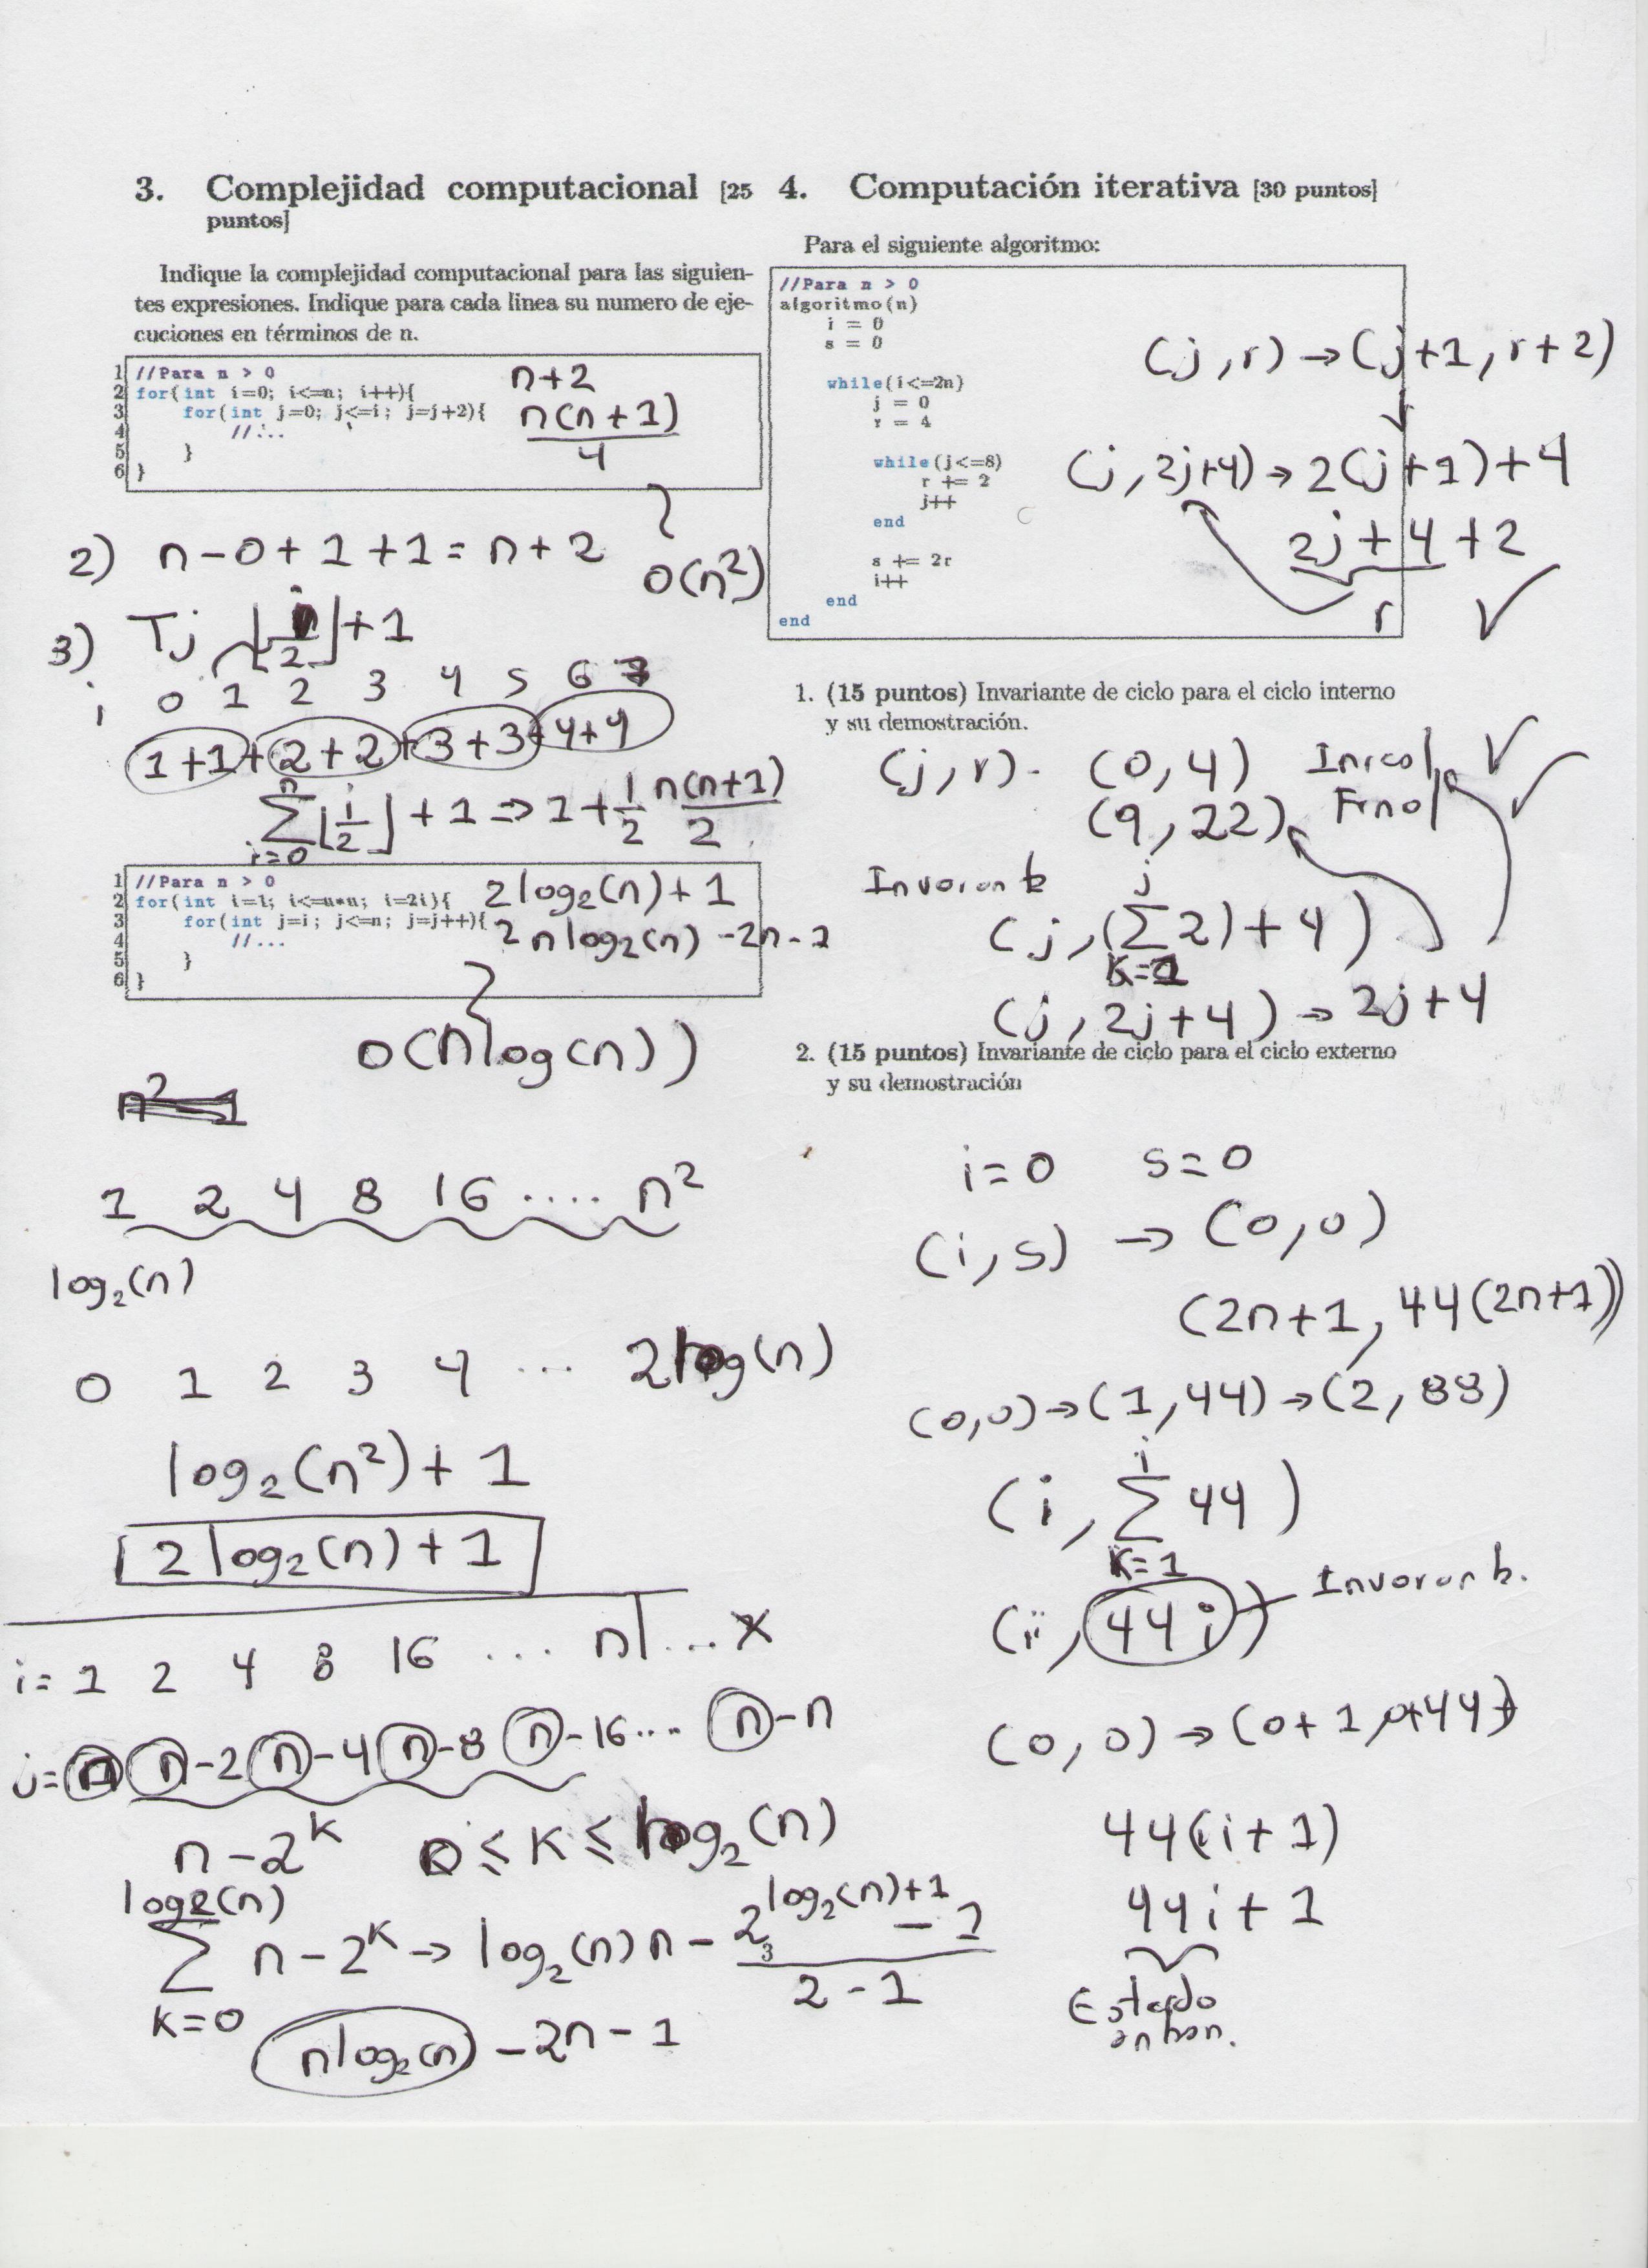 3. Complejidad computacional [25
puntos]
Indique la complejidad computacional para las siguien-
tes expresiones. Indique para cada linea su numero de eje-
cuciones en términos de n.
1 //Para n > 0
2 for(int i=0; i<=n; i++){ n+2
3 for(int j=0; j<=i; j=j+2){ n(n+1)
4 //... 4
5 }
6 }
O(n²)
2) n-0+1+1 = n+2
3) Tj ⌊i/2⌋+1
i 0 1 2 3 4 5 6 7
1+1+2+2+3+3+4+4
n
∑ ⌊i/2⌋ + 1 → 1 + 1/2 n(n+1)/2
i=0
1 //Para n > 0
2 for(int i=1; i<=n*n; i=2i){ 2log₂(n)+1
3 for(int j=i; j<=n; j=j++){ 2nlog₂(n) -2n-1
4 //...
5 }
6 }
O(nlog(n))
1 2 4 8 16 .... n²
log₂(n)
0 1 2 3 4 ... 2log(n)
log₂(n²)+1
2log₂(n)+1
i= 1 2 4 8 16 .... n ... x
j= n n-2 n-4 n-8 n-16.... n-n
n-2ᴷ 0 ≤ K ≤ log₂(n)
log2(n)
∑ n-2ᴷ → log₂(n)n - (2^(log₂(n)+1) - 1)/(2-1)
K=0
nlog₂(n) -2n-1
3
4. Computación iterativa [30 puntos]
Para el siguiente algoritmo:
//Para n > 0
algoritmo(n)
i = 0
s = 0
while(i<=2n)
j = 0
r = 4
while(j<=8)
r += 2
j++
end
s += 2r
i++
end
end
(j,r) → (j+1, r+2)
(j,2j+4) → 2(j+1)+4
2j+4+2
r
1. (15 puntos) Invariante de ciclo para el ciclo interno
y su demostración.
(j,r). (0,4) Inicial
(9,22) Final
Invariante
j
(j,(∑2)+4)
K=1
(j,2j+4) → 2j+4
2. (15 puntos) Invariante de ciclo para el ciclo externo
y su demostración
i=0 s=0
(i,s) → (0,0)
(2n+1, 44(2n+1))
(0,0)→(1,44)→(2,88)
i
(i,∑44)
K=1
(i,44i) Invariante.
(0,0)→(0+1,0+44)
44(i+1)
44i+1
Estado